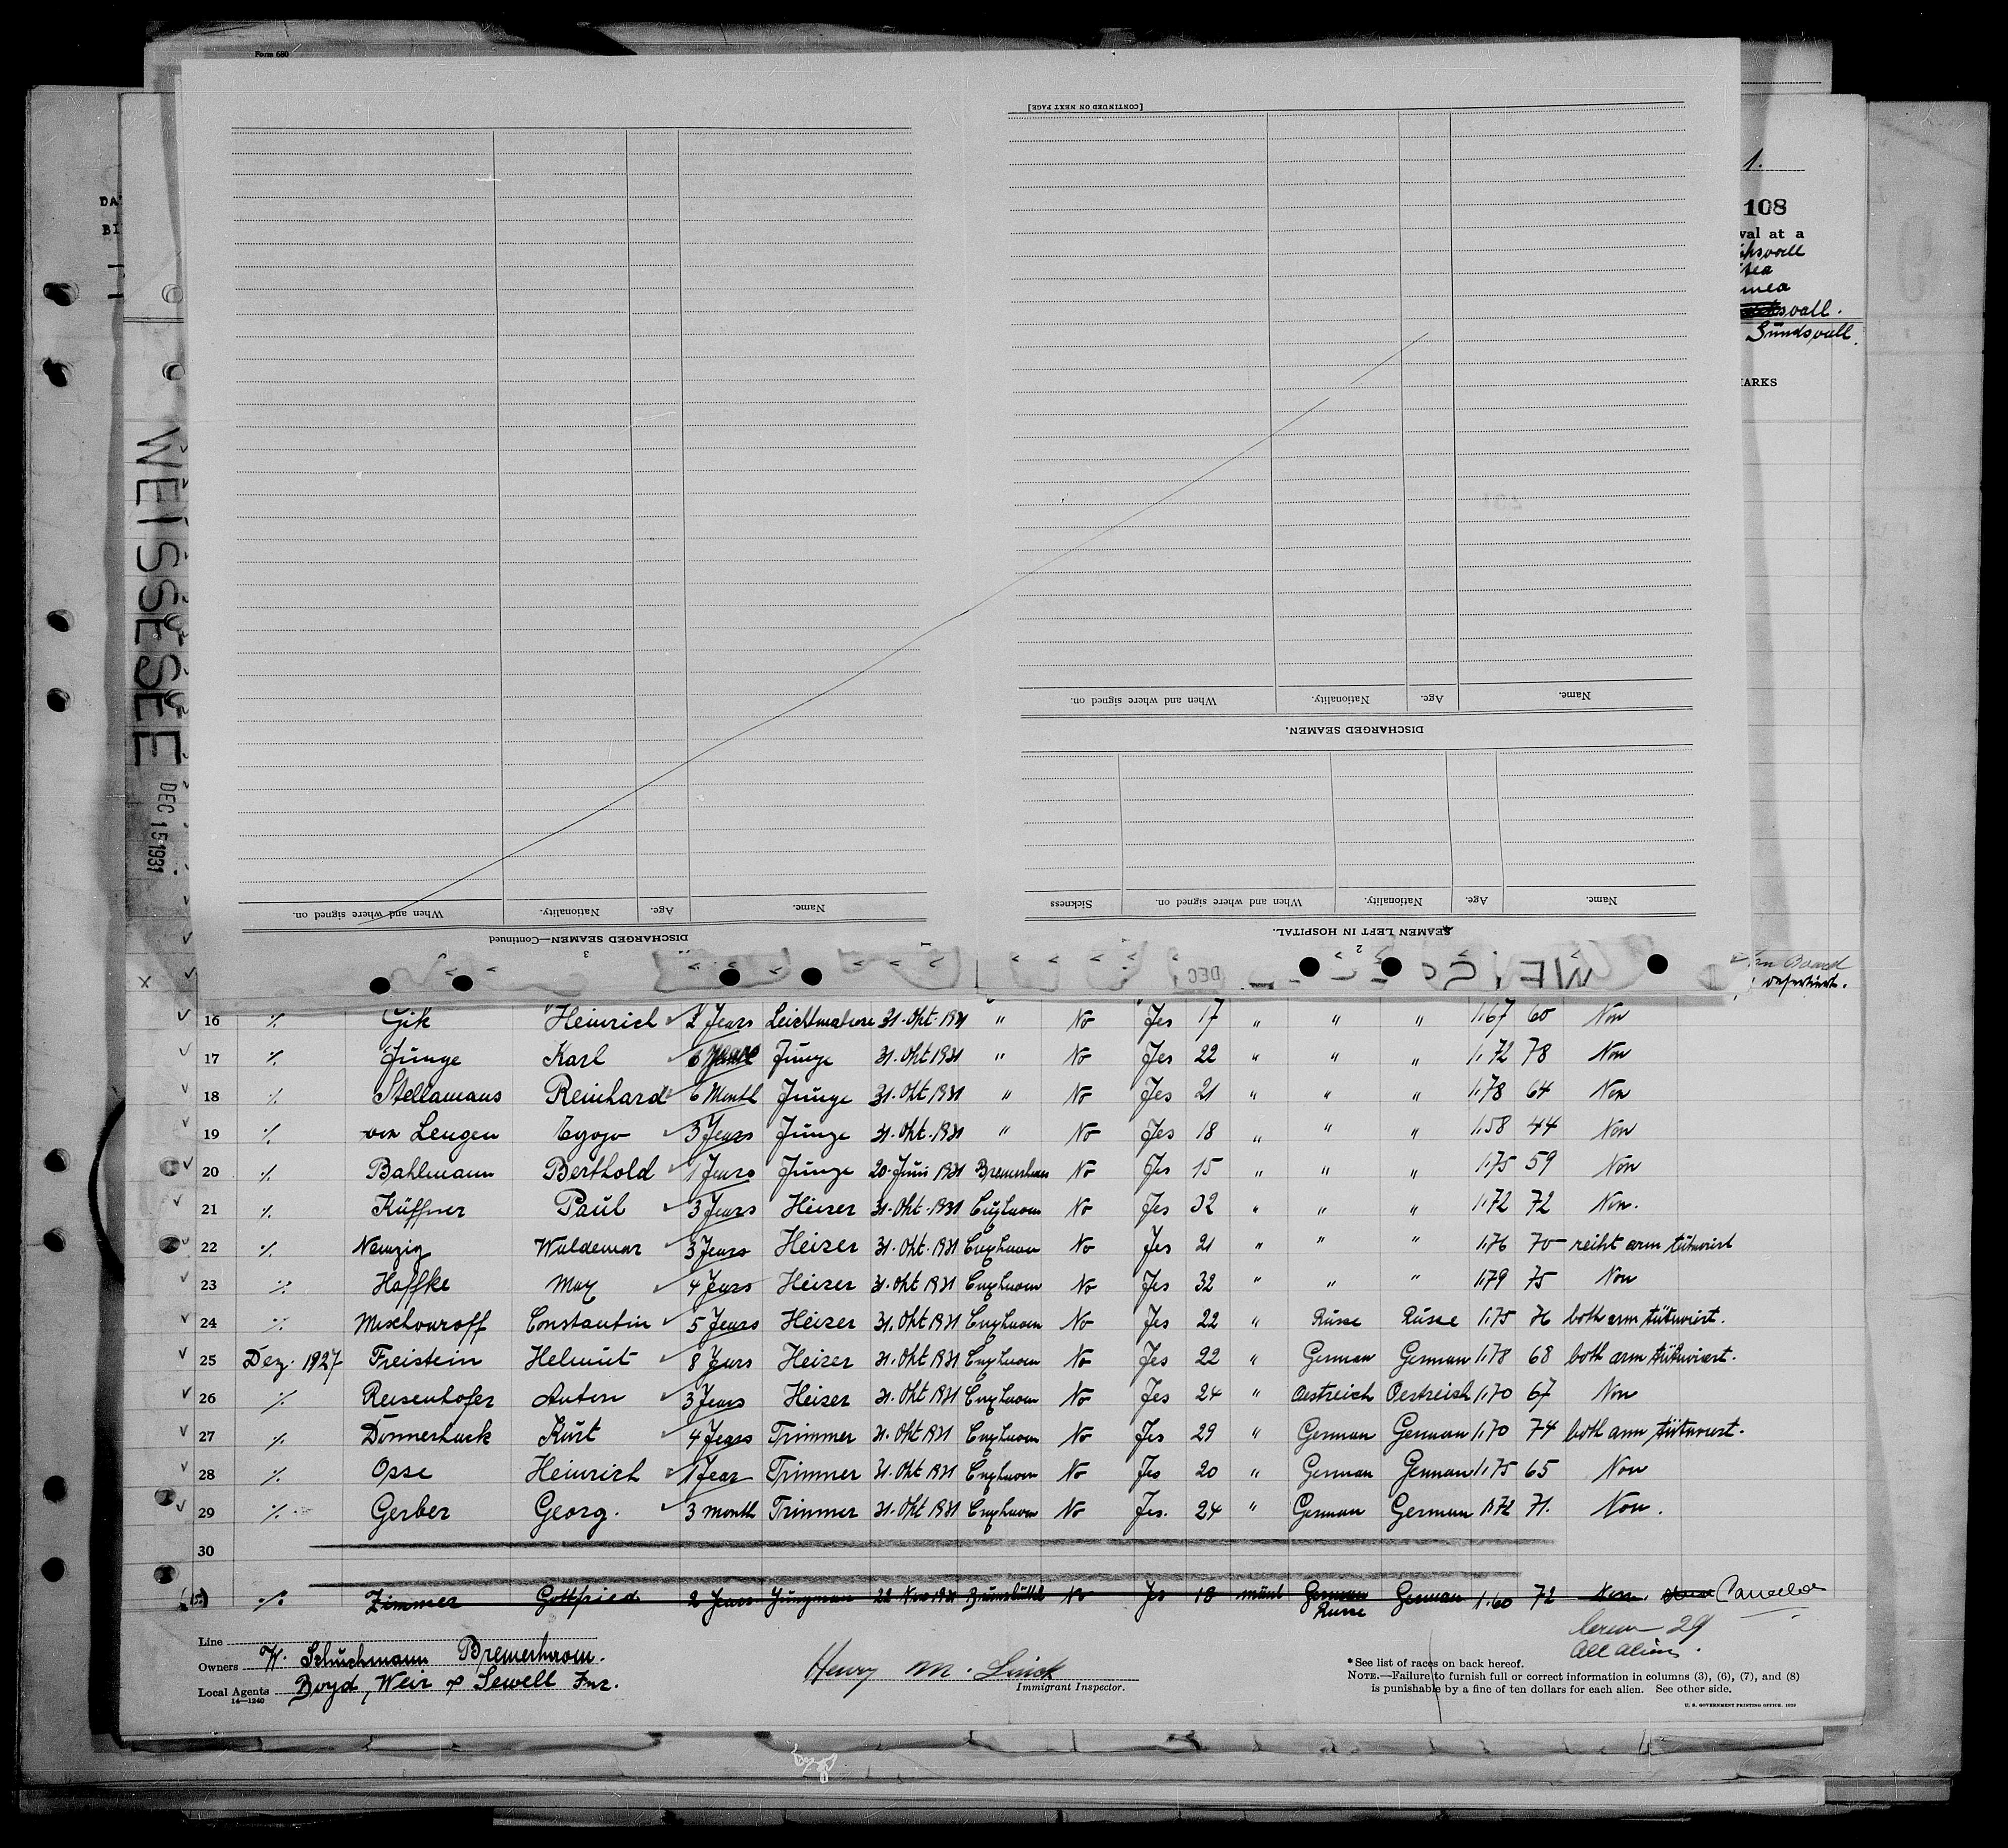 Form 680
[CONTINUED ON NEXT PAGE]
1.
108
val at a
Sundsvall.
ARKS
WEISSESEE
DEC 15 1931
When and where signed on.
Nationality.
Age.
Name.
DISCHARGED SEAMEN.
Sickness
When and where signed on.
Nationality.
Age.
Name.
SEAMEN LEFT IN HOSPITAL.
2
When and where signed on.
Nationality.
Age.
Name.
DISCHARGED SEAMEN—Continued
3
DEC
16 ·/. Gik Heinrich 2 Jears Leichtmatrose 31. Okt. 1931 " No Jes 17 " " " 1.67 60 Non
17 ·/. Junge Karl 6 Junge 31. Okt 1931 " No Jes 22 " " " 1.72 78 Non
18 ·/. Stellamans Reinhard 6 Month Junge 31. Okt. 1931 " No Jes 21 " " " 1.78 64 Non
19 ·/. von Lengen 3 Jears Junge 31. Okt. 1931 " No Jes 18 " " " 1.58 44 Non
20 ·/. Bahlmann Berthold 1 Jears Junge 20. Juni 1931 Bremerhaven No Jes 15 " " " 1.75 59 Non
21 ·/. Küffner Paul 3 Jears Heizer 31. Okt. 1931 Cuxhaven No Jes 32 " " " 1.72 72 Non.
22 ·/. Waldemar 3 Jears Heizer 31. Okt. 1931 Cuxhaven No Jes 21 " " " 1.76 70 reiht arm tütuwirt
23 ·/. Haffke Max 4 Jears Heizer 31. Okt 1931 Cuxhaven No Jes 32 " " " 1.79 75 Non
24 ·/. Meschouroff Constantin 5 Jears Heizer 31. Okt 1931 Cuxhaven No Jes 22 " Russe Russe 1.75 76 both arm tütuwirt.
25 Dez. 1927 Freistein Helmut 8 Jears Heizer 31. Okt 1931 Cuxhaven No Jes 22 " German German 1.78 68 both arm tütuwirt.
26 ·/. Reisenhofer Anton 3 Jears Heizer 31. Okt 1931 Cuxhaven No Jes 24 " Oestreich Oestreich 1.70 67 Non
27 ·/. Donnerhack Kurt 4 Jears Trimmer 31. Okt 1931 Cuxhaven No Jes 29 " German German 1.70 74 both arm tütuwirt.
28 ·/. Osse Heinrich 1 Jear Trimmer 31. Okt 1931 Cuxhaven No Jes 20 " German German 1.75 65 Non
29 ·/. Gerber Georg. 3 month Trimmer 31. Okt 1931 Cuxhaven No Jes. 24 " German German 1.72 71. Non.
30
·/. Zimmer Gottfried 2 Jears Jungman 22 Nov 1931 Brunsbüttel No Jes 18 mänl German Russe German 1.60 72 Non.
Crew 29
All aliens.
Line
Owners W. Schuchmann Bremerhaven.
Local Agents Boyd, Weir & Sewell Inc.
14—1240
Henry M.
Immigrant Inspector.
*See list of races on back hereof.
NOTE.—Failure to furnish full or correct information in columns (3), (6), (7), and (8)
is punishable by a fine of ten dollars for each alien. See other side.